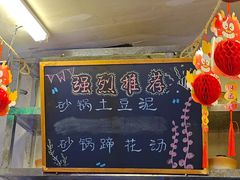 强烈推荐
砂锅土豆泥
砂锅蹄花汤